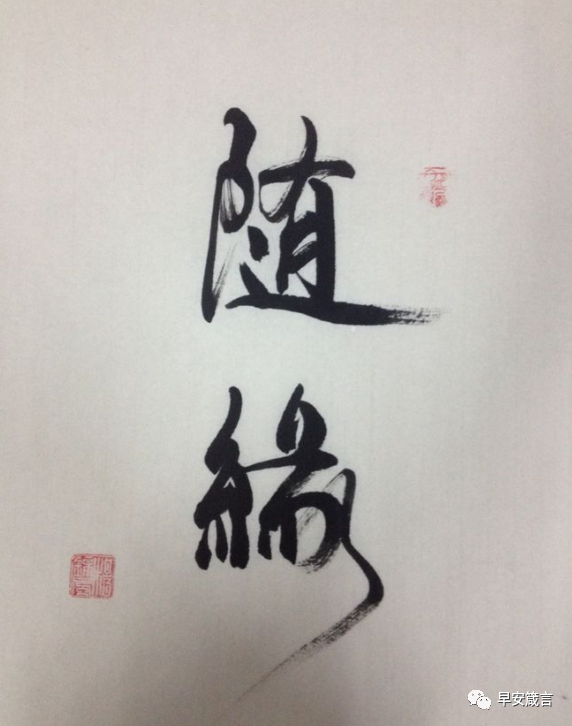 随
緣
早安箴言